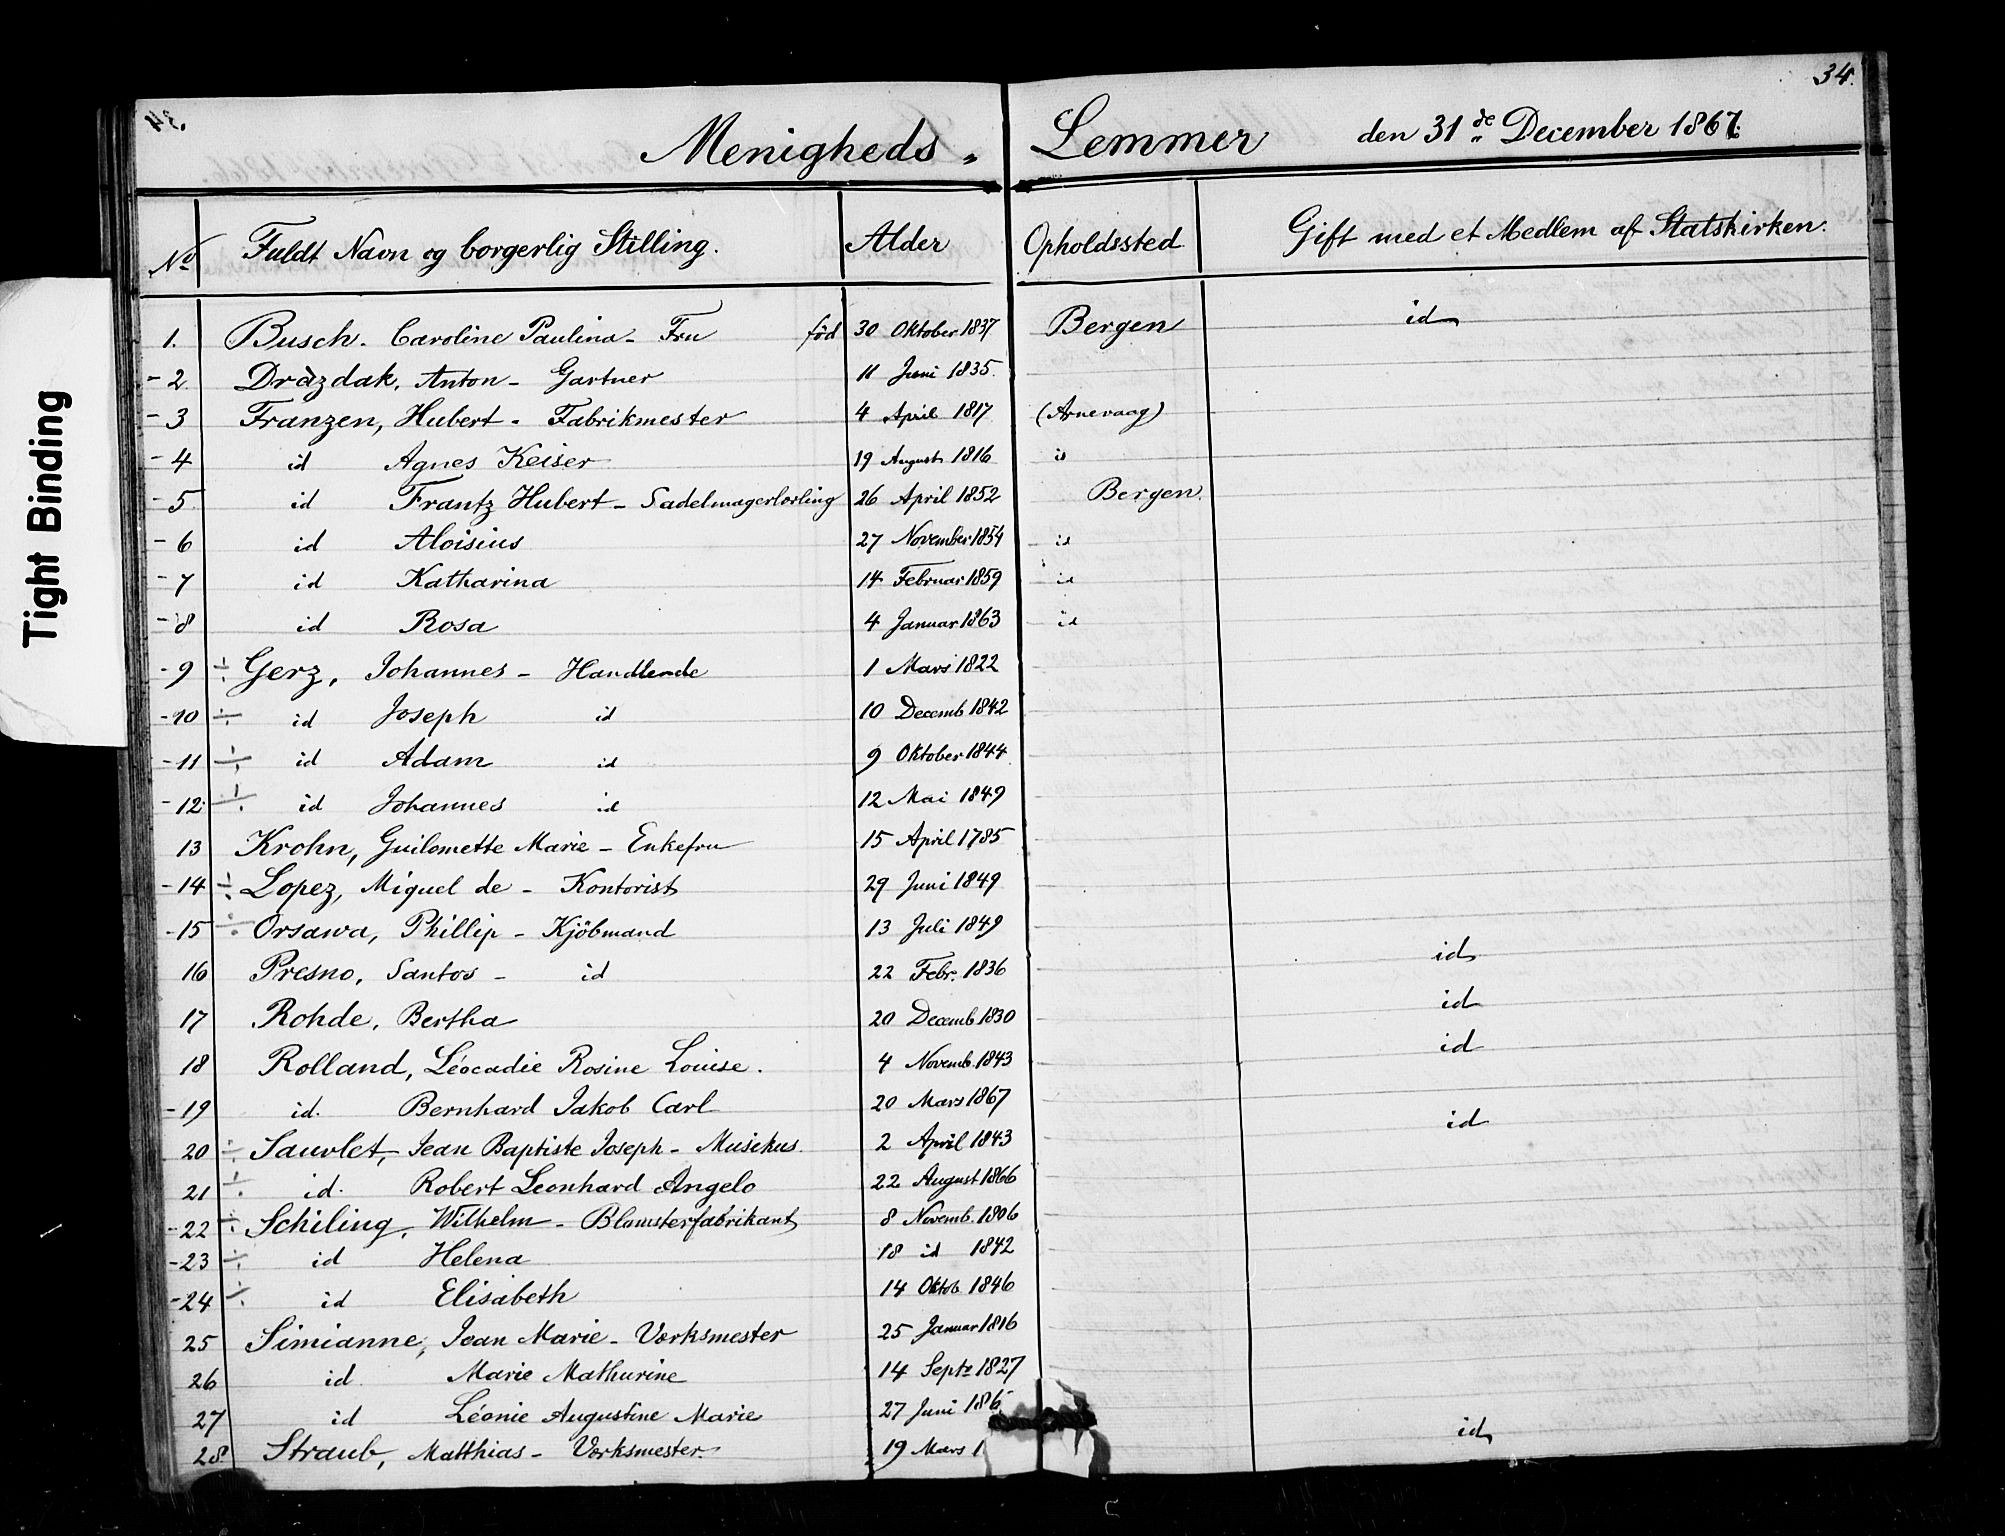 Tight Binding
34.
34.
Menigheds- Lemmer den 31de December 1867.
No Fuldt Navn og borgerlig Stilling. Alder Opholdssted Gift med et Medlem af Statskirken.
1. Busch. Caroline Paulina - Fru född 30 Oktober 1837 Bergen id
- 2 Dràzdak, Anton - Gartner 11 Juni 1835.
- 3 Franzen, Hubert - Fabrikmester 4 April 1817 (Arnevaag)
- 4 id Agnes Keiser 19 August 1816 id
- 5 id Frantz Hubert - Sadelmagerlœrling 26 April 1852 Bergen.
- 6 id Aloisius 27 November 1854 id
- 7 id Katharina 14 Februar 1859 id
- 8 id Rosa 4 Januar 1863 id
- 9 ÷ Gerz, Johannes - Handlende 1 Mars 1822
- 10 ÷ id Joseph id 10 Decemb 1842
- 11 ÷ id Adam id 9 Oktober 1844
- 12 ÷ id Johannes id 12 Mai 1849
13 Krohn, Guilomette Marie - Enkefru 15 April 1785
- 14 ÷ Lopez, Miguel de - Kontorist 29 Juni 1849
- 15 ÷ Orsawa, Phillip - Kjöbmand 13 Juli 1849
16 Presno, Santos - id 22 Febr. 1836 id
17 Rohde, Bertha 20 Decemb 1830 id
18 Rolland, Léocadie Rosine Louise. 4 Novemb. 1843 id
- 19 id. Bernhard Jakob Carl 20 Mars 1867
20 ÷ Sauvlet, Jean Baptiste Joseph - Musikus. 2 April 1843 id
21 ÷ id. Robert Leonhard Angelo 22 August 1866
- 22 ÷ Schiling, Wilhelm - Blomsterfabrikant 8 Novemb. 1806
- 23 ÷ id Helena 18 id 1842
- 24 ÷ id Elisabeth 14 Oktob. 1846
25 Simianne, Jean Marie - Værksmester 25 Januar 1816
26 id Marie Mathurine 14 Septr 1827
27 id Léonie Augustine Marie 27 Juni 186
28 Straub, Matthias - Værksmester. 19 Mars 1 id